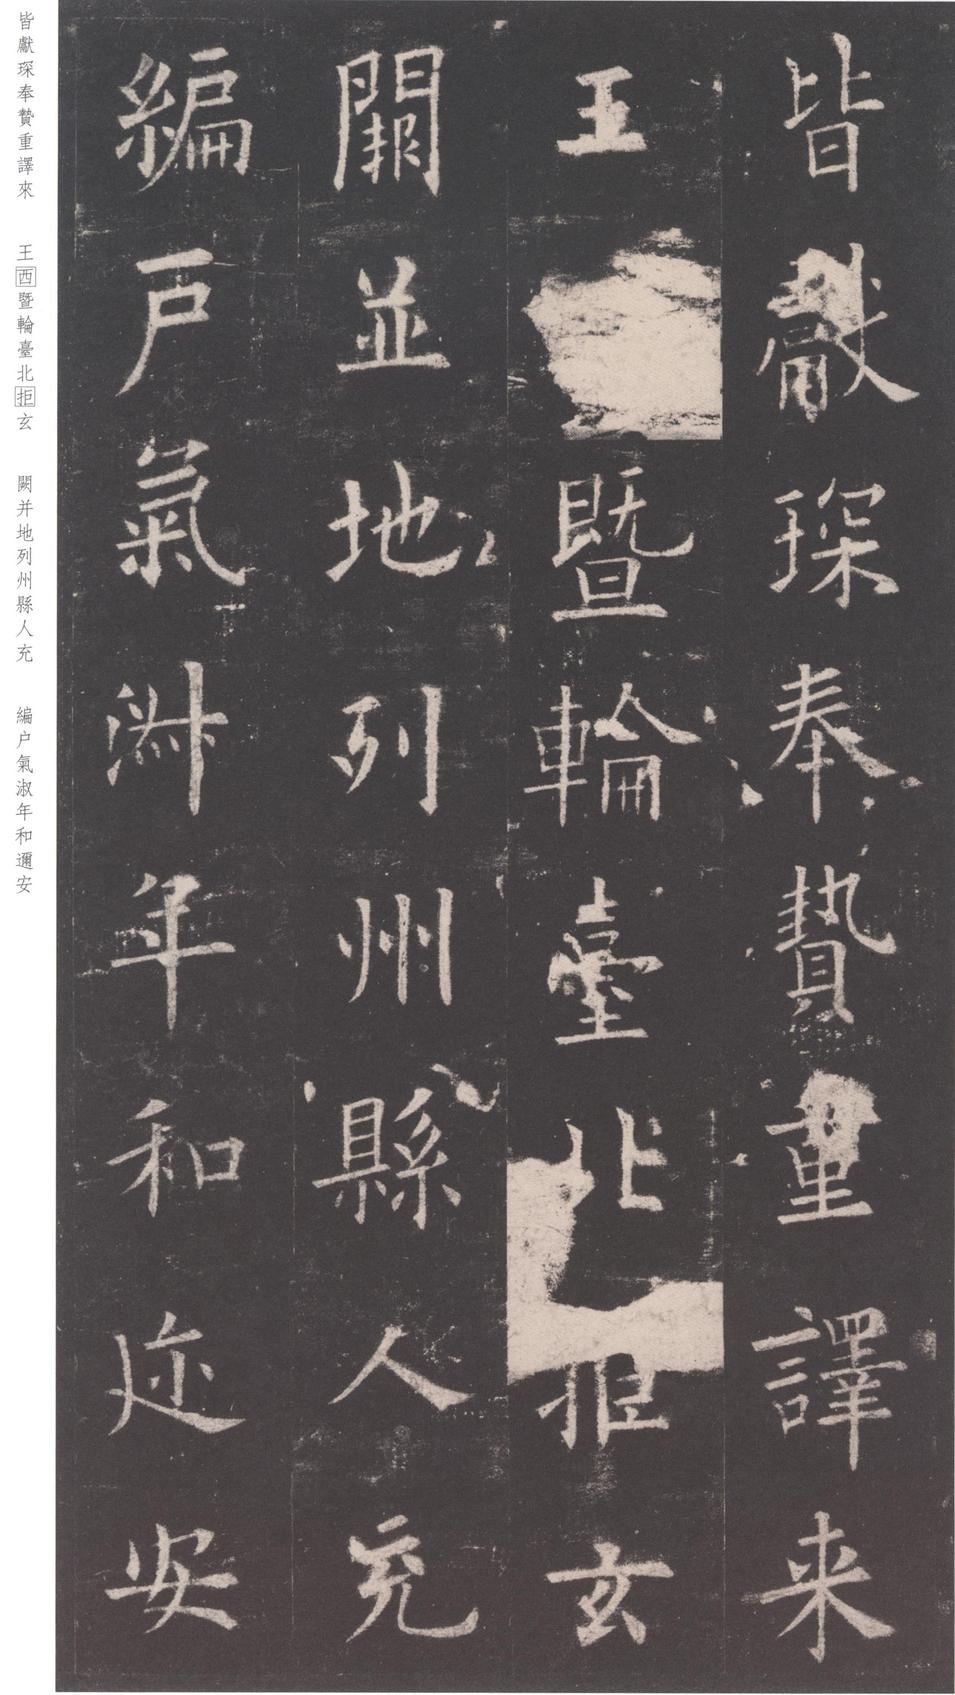 皆獻琛奉贄重譯来
王暨輪臺北拒玄
闕並地列州縣人充
編戸氣淑年和迩安
皆獻琛奉贄重譯來 王西暨輪臺北拒玄 闕并地列州縣人充 編户氣淑年和邇安